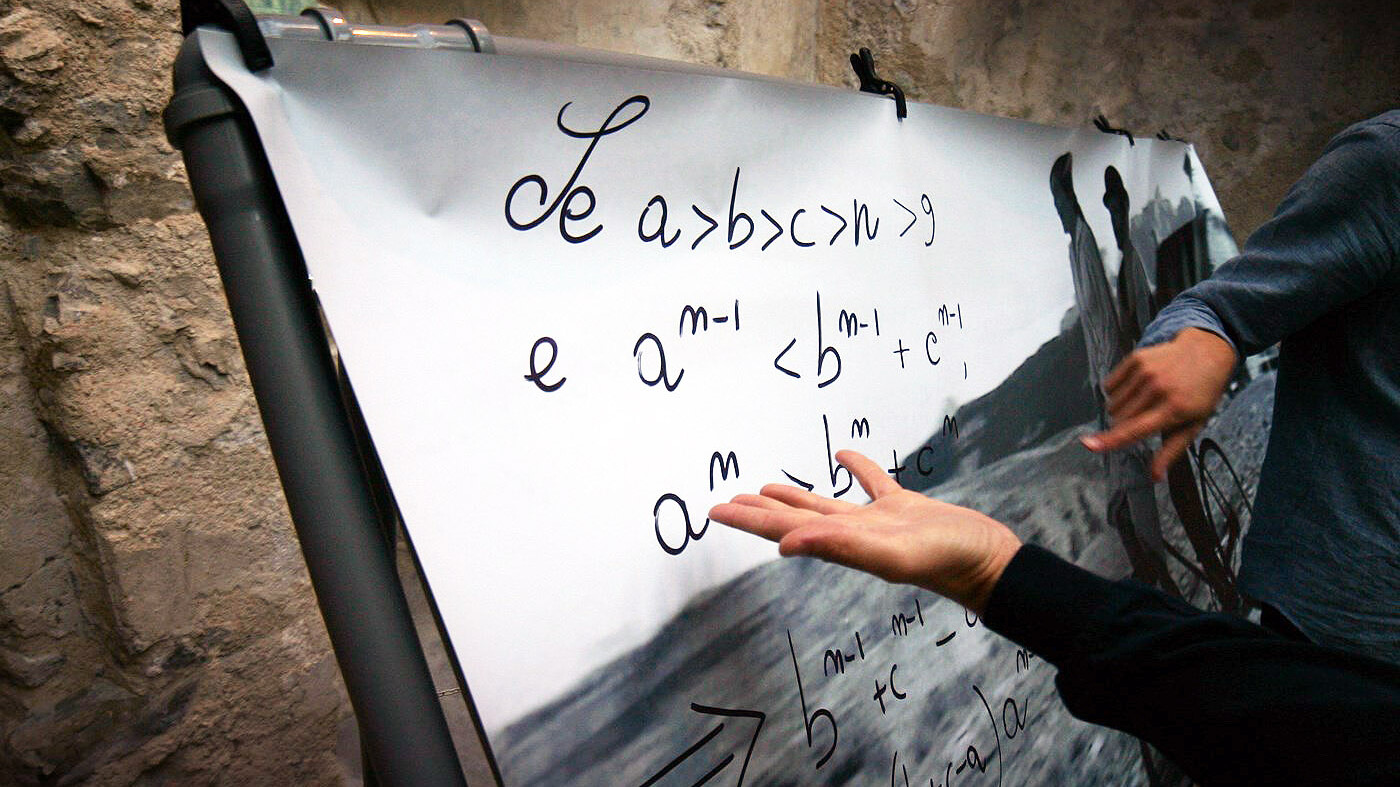 Se a>b>c>n>9
e a^{n-1} < b^{n-1} + c^{n-1},
a^n > b^n + c^n
⇒ b^{n-1} + c^{n-1} -
+c-a) a